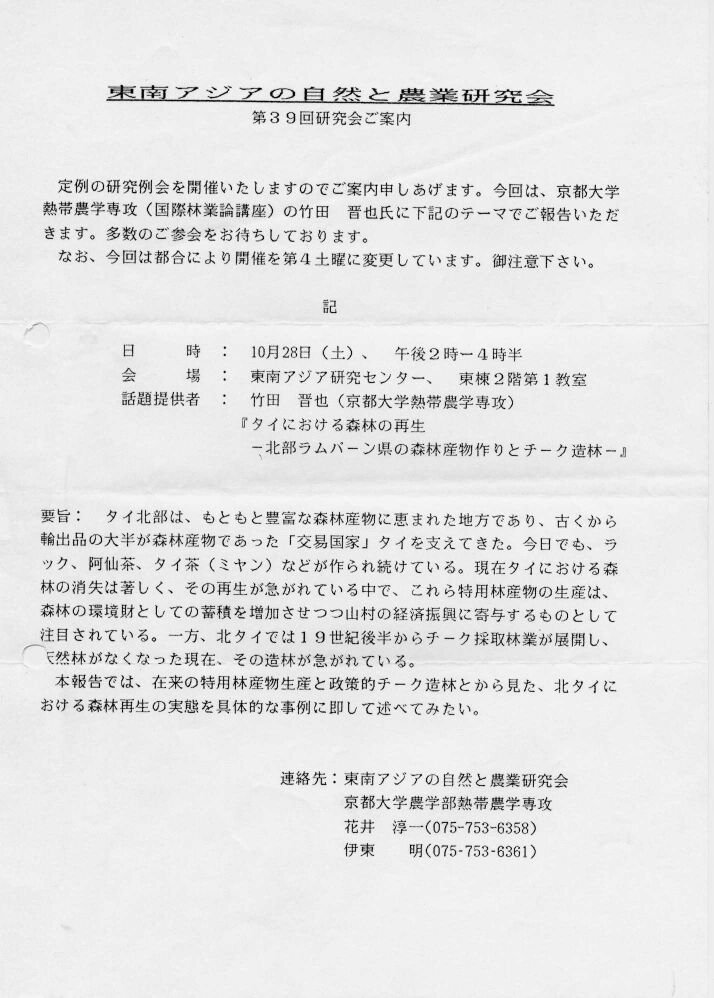 東南アジアの自然と農業研究会
第39回研究会ご案内
定例の研究例会を開催いたしますのでご案内申しあげます。今回は、京都大学
熱帯農学専攻（国際林業論講座）の竹田　晋也氏に下記のテーマでご報告いただ
きます。多数のご参会をお待ちしております。
なお、今回は都合により開催を第４土曜に変更しています。御注意下さい。
記
日　　時　：　10月28日（土）、　午後２時ー４時半
会　　場　：　東南アジア研究センター、　東棟２階第１教室
話題提供者　：　竹田　晋也（京都大学熱帯農学専攻）
『タイにおける森林の再生
－北部ラムパーン県の森林産物作りとチーク造林－』
要旨：　タイ北部は、もともと豊富な森林産物に恵まれた地方であり、古くから
輸出品の大半が森林産物であった「交易国家」タイを支えてきた。今日でも、ラ
ック、阿仙茶、タイ茶（ミヤン）などが作られ続けている。現在タイにおける森
林の消失は著しく、その再生が急がれている中で、これら特用林産物の生産は、
森林の環境財としての蓄積を増加させつつ山村の経済振興に寄与するものとして
注目されている。一方、北タイでは１９世紀後半からチーク採取林業が展開し、
天然林がなくなった現在、その造林が急がれている。
本報告では、在来の特用林産物生産と政策的チーク造林とから見た、北タイに
おける森林再生の実態を具体的な事例に即して述べてみたい。
連絡先：東南アジアの自然と農業研究会
京都大学農学部熱帯農学専攻
花井　淳一(075-753-6358)
伊東　　明(075-753-6361)